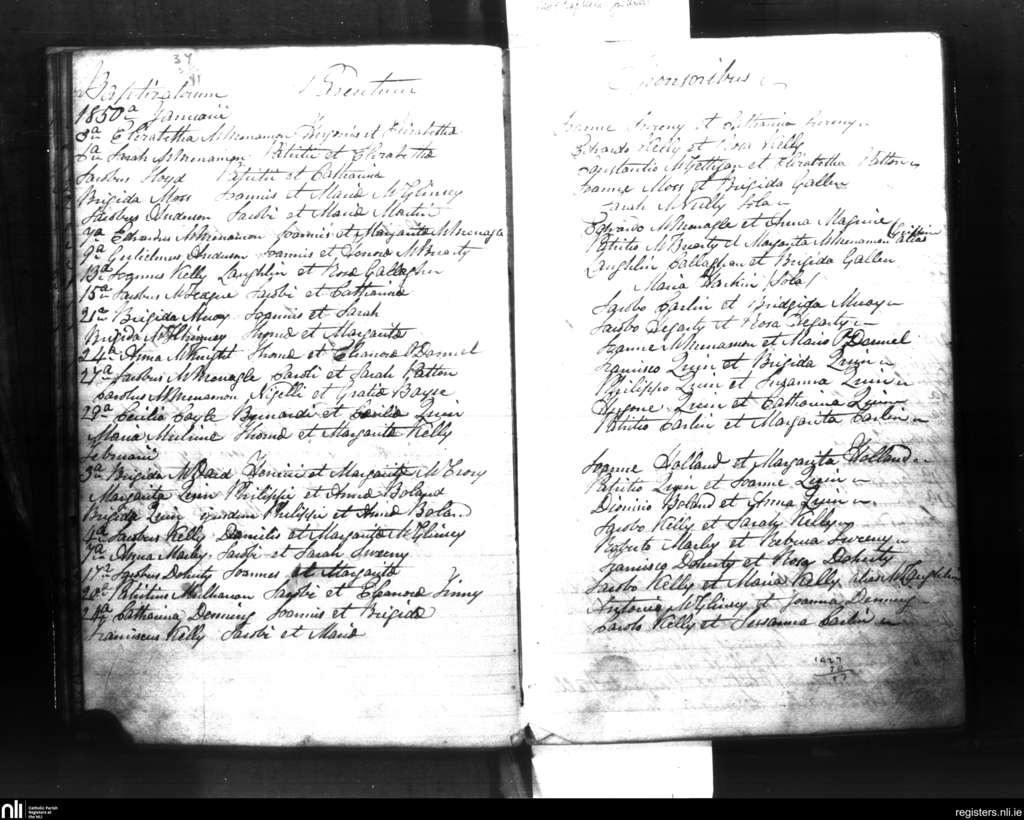 34
Baptizatorum Parentum
1850 a Januarii
3a Elizabetha McMenamon et Elizabetha
Sarah McMenamin Patritii et Elizabetha
Jacobus Floyd Patritii et Catharina
Brigida Moss Joannis et Maria McGlinsey
Jacobus Anderson Jacobi et Maria Martin
7a Edvardus McMenamon Joannis et Margarita McMenagle
9a Gulielmus Anderson Joannis et Honora McBrearty
13a Joannes Kelly Laughlin et Rosa Gallagher
15a Jacobus McTeague Jacobi et Catharina
21a Brigida Joannis et Sarah
Brigida Thoma et Margarita
24a Anna McKnight Thoma et Eleanora O Donnel
27a Jacobus McMenagle Caroli et Sarah Patton
Carolus McMenamon Nigelli et Gratia
29a Cecilia Coyle Bernardi et Cecilia Quin
Maria Thoma et Margarita Kelly
Februarii
3a Brigida McDaid et Margarita McCrory
Margarita Quin Philippi et Anna Boland
Brigida Quin Philippi et Anna Boland
4a Jacobus Kelly Danielis et Margarita McGlinsey
7a Anna Marley Jacobi et Sarah Sweeny
17a Jacobus Doherty Joannes et Margarita
20a Patritius Mulhanan Jacobi et Eleanora Finny
24a Catharina Denning Joannis et Brigida
Franciscus Kelly Jacobi et Maria
Sponsoribus
Joanne Sweeny et Catharina Sweeny
Edvardo Kelly et Rosa Kelly
Constantio McGettigan et Elizabetha Patton
Joanne Moss et Brigida Gallen
Sarah McNully Sola
Edvardo McMenagle et Anna Maguire
Patritio McBrearty et Margarita McMenamon alias Griffin
Laughlin Callaghan et Brigida Gallen
Maria Harkin /Sola/
Jacobo Carlin et Bridgida
Jacobo Hegarty et Rosa Hegarty
Joanne McMenamon et Maria O Donnel
Francisco Quin et Brigida Quin
Philippo Quin et Susanna Quin
Eugone Quin et Catharina Quin
Patritio Carlin et Margarita Carlin
Joanne Holland et Margarita Holland
Patritio Quin et Joanne Quin
Dionisio Boland et Anna Quin
Jacobo Kelly et Sarah Kelly
Roberto Marley et Rebecca Sweeny
Francisco Doherty et Rosa Doherty
Jacobo Kelly et Maria Kelly alias McLaughlin
Antonio McGlinsey et Joanna Denning
Carolo Kelly et Susanna Carlin
nli
Catholic Parish
Registers at
the NLI
registers.nli.ie